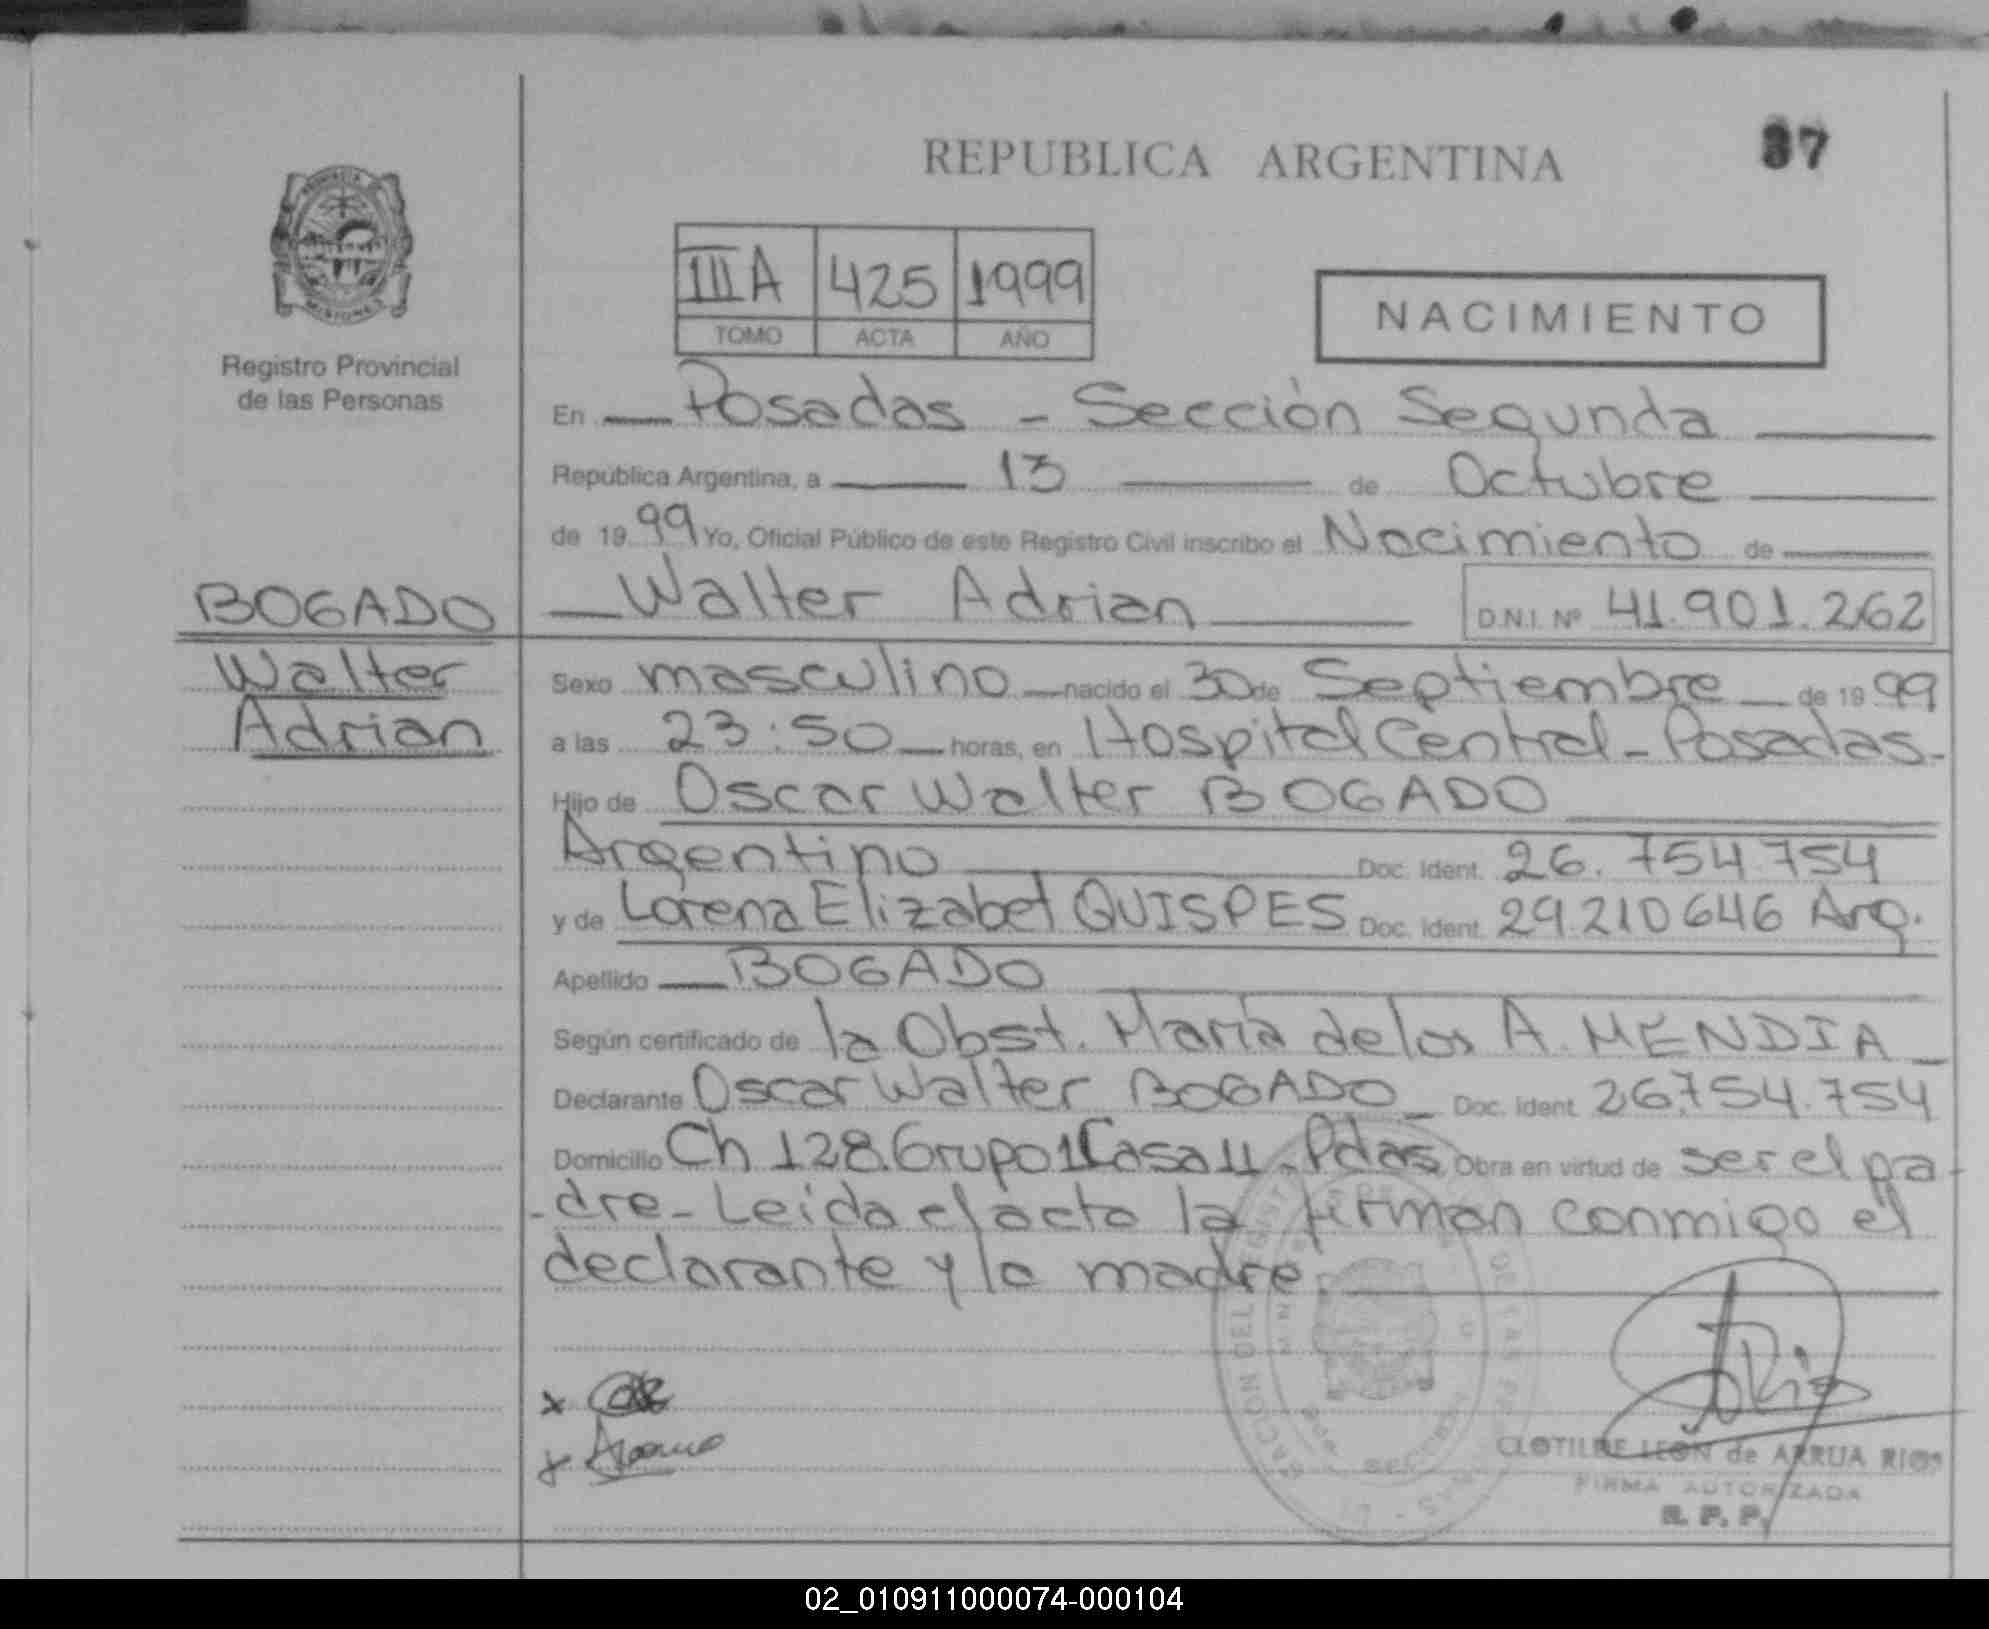 REPUBLICA ARGENTINA
87
PROVINCIA DE
MISIONES
Registro Provincial
de las Personas
IIIA 425 1999
TOMO ACTA AÑO
NACIMIENTO
En Posadas - Sección Segunda
República Argentina, a 13 de Octubre
de 1999 Yo, Oficial Público de este Registro Civil inscribo el Nacimiento de
BOGADO
Walter
Adrian
Walter Adrian D.N.I. Nº 41.901.262
Sexo masculino nacido el 30 de Septiembre de 1999
a las 23:50 horas, en Hospital Central - Posadas-
Hijo de Oscar Walter BOGADO
Argentino Doc. Ident. 26.754.754
y de Lorena Elizabet QUISPES Doc. Ident. 29.210646 Arg.
Apellido BOGADO
Según certificado de la Obst. María de los A. MENDIA
Declarante Oscar Walter BOGADO Doc. Ident. 26.754.754
Domicilio Ch 128.Grupo1Casa11-Pdas. Obra en virtud de ser el pa-
-dre- Leida el acta la firman conmigo el
declarante y la madre.
CLOTILDE LEON de ARRUA RIOS
FIRMA AUTORIZADA
R. P. P.
02_010911000074-000104